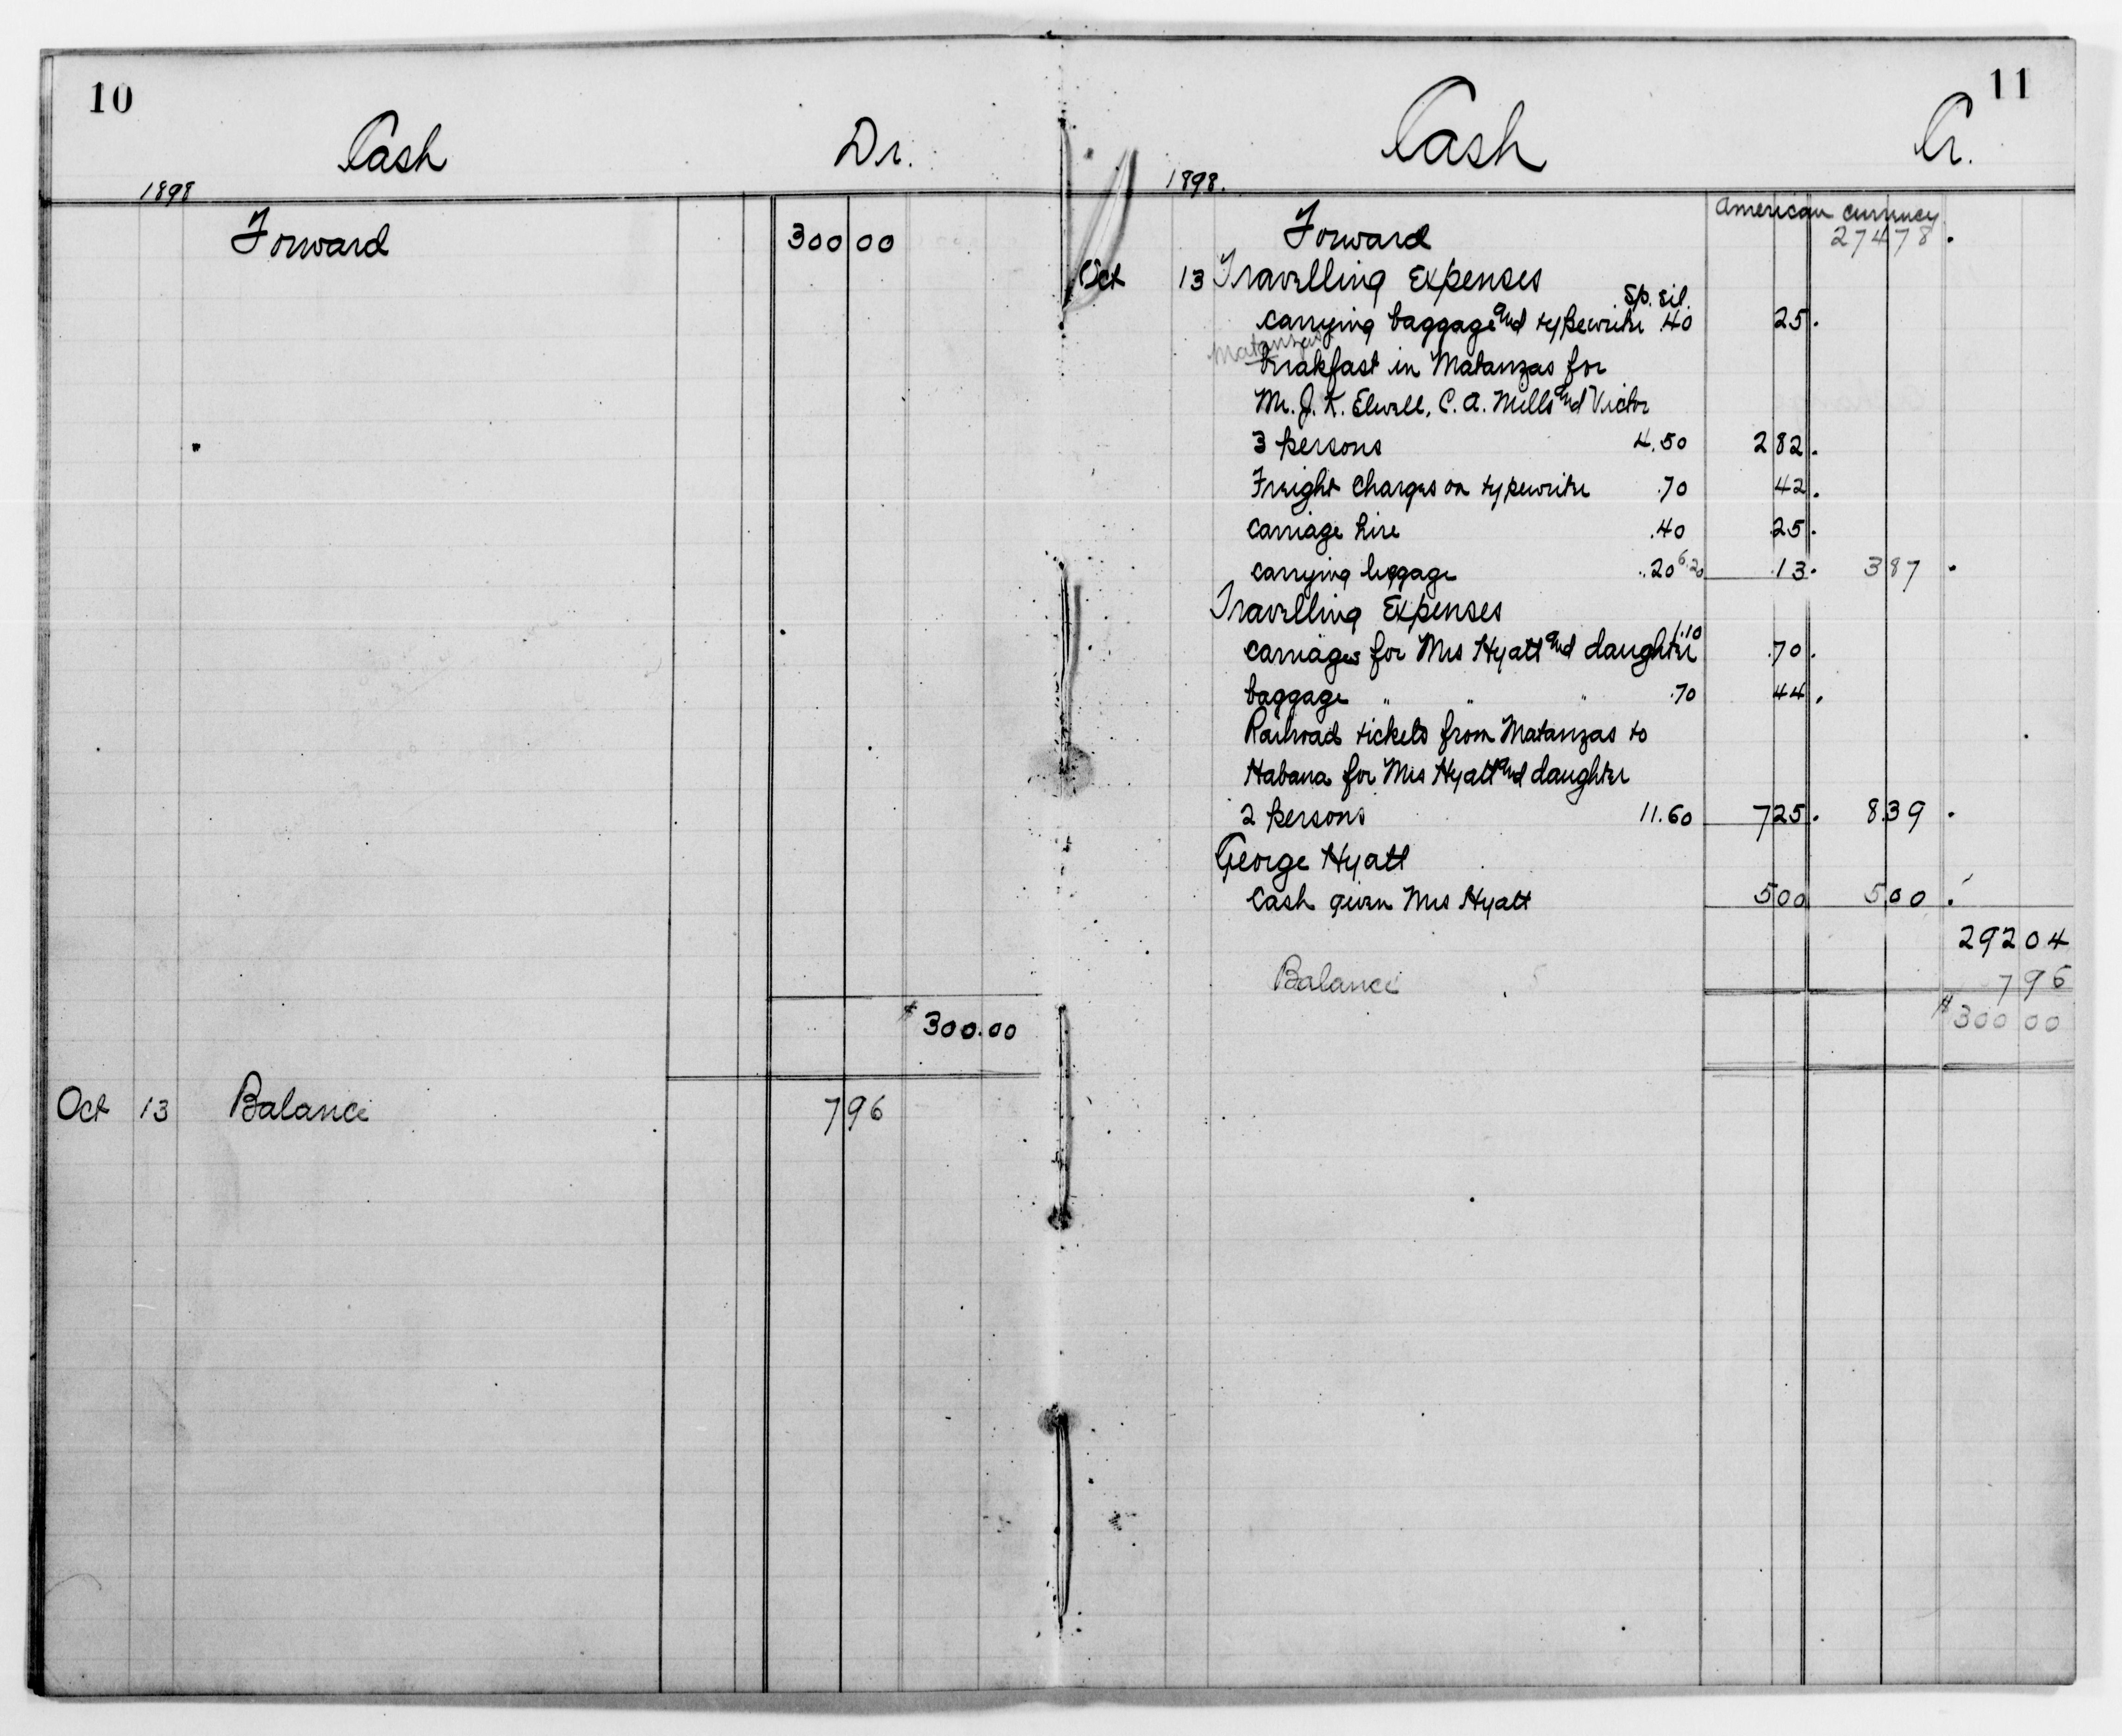 10
Cash Dr.
1898
Forward 300 00
$300.00
Oct 13 Balance 7 96
11
Cash Cr.
1898.
American currency
Forward 274 78.
Oct 13 Travelling Expenses
Sp. sil.
carrying baggage and typewriter .40 25.
Matanzas
breakfast in Matanzas for
Mr. J. K. Elwell, C. A. Mills and Victor
3 persons 4.50 2 82.
Freight charges on typewriter .70 42.
carriage hire .40 25.
carrying luggage .20 6.20 .13. 3 87.
Travelling Expenses
carriages for Mrs Hyatt and daughter 1.10 .70.
baggage " " " .70 44.
Railroad tickets from Matanzas to
Habana for Mrs Hyatt and daughter
2 persons 11.60 7 25. 8.39.
George Hyatt
Cash given Mrs Hyatt 5 00 5 00.
292 04
Balance 7 96
$300 00